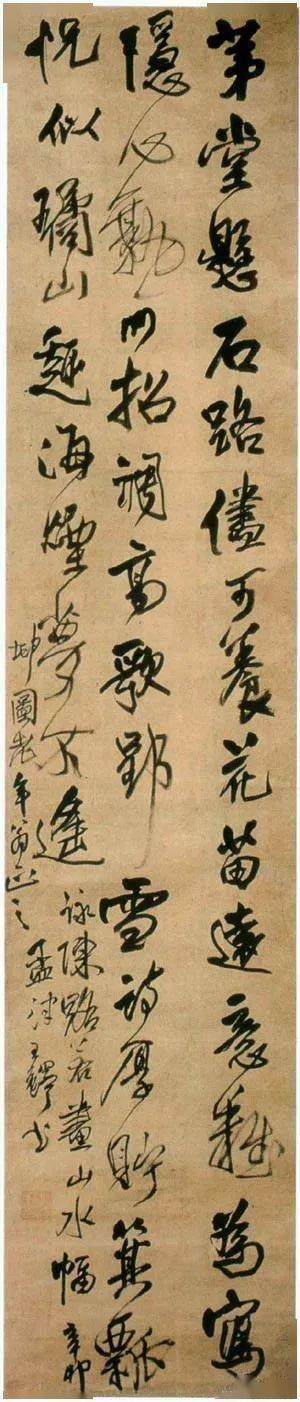 茅堂懸石路儘可養花苗遠意難為寫
隱心招調高歌郢雪詩厚貯箕瓢
怳似璚山趣海煙夢不遙 詠陳路若畫山水幅 辛卯
坤圖老年翁正之 孟津王鐸書